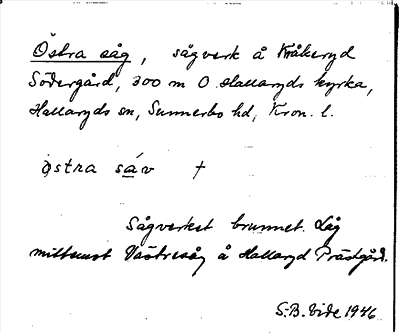 Östra såg, sågverk å Kråkeryd
Södergård, 300 m O Hallaryds kyrka,
Hallaryds sn, Sunnerbo hd, Kron. l.
östra sáv †
Sågverket brunnet. Låg
mittemot Västresåg å Hallaryd Prästgård.
S.-B. Vide 1946